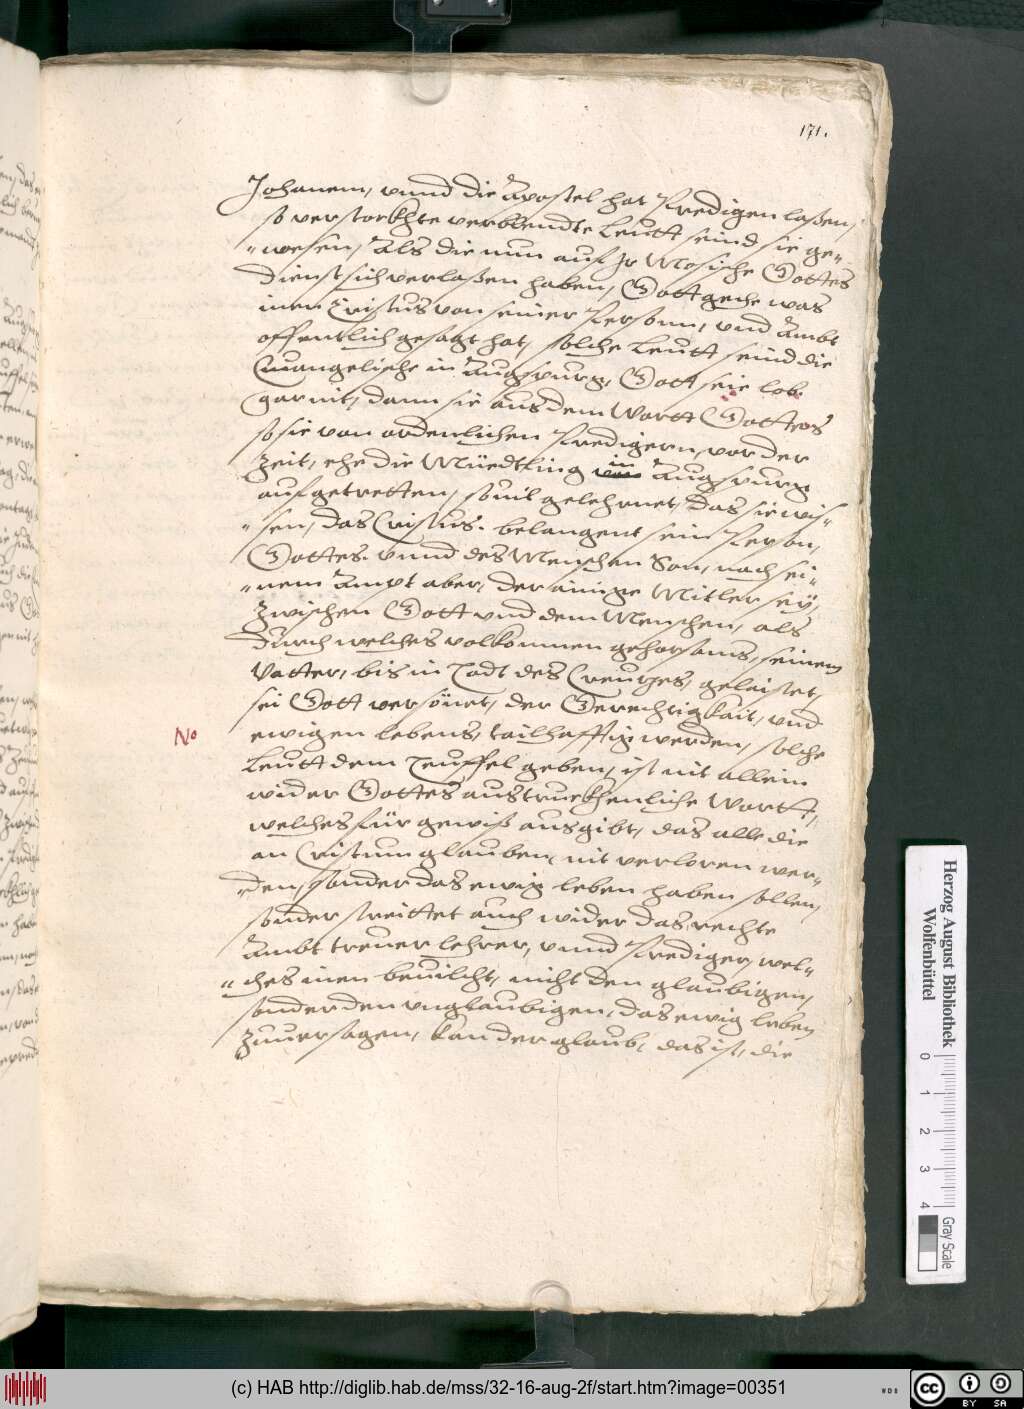 171.
Johanem, vnnd die Apostel hat Predigen laßen,
so verstorkhte verblendte Leutt seind sie ge=
=wesen, Als die nun auf Jr Mosische Gottes
dienst sich verlaßen haben, Gott gebe was
inen Cristus von seiner Person, vnd Ambt
offentlich gesagt hat, solche Leutt seind die
Euangelische in Augspurg, Gott seie lob.
gar nit, dann sie aus dem Wortt Gottes
so sie von ordenlichen Predigern, vor der
Zeit, ehe die Müedtling in Augspurg
aufgetretten, souil gelehrnet, das sie wis=
=sen, das Cristus. belangent sein Person,
Gottes. vnnd des Menschen Son, nach sei=
=nem Ampt aber, der ainige Mitler seÿ,
Zwischen Gott vnd dem Menschen, als
durch welches volkommen gehorsams, seinem
Vatter, bis in Todt des Creutzes, gelaistet,
sei Gott versönet, der Gerechtigkait, vnd
ewigen lebens, tailhafftig werden, solche
No
Leutt dem Teuffel geben, ist nit allein
wider Gottes austruckhenliche Wortt,
welches für gewiß ausgibt, das alle die
an Cristum glauben, nit verloren wer=
=den, sonder das ewig leben haben sollen,
sonder streittet auch wider das, rechte
Ambt treuer lehrer, vnnd Prediger, wel=
=ches inen beuilcht, nicht den glaubigen,
sonder den vnglaubigen, das ewig leben
Zuuersagen, kan der glaub, das ist, die
Herzog August Bibliothek
Wolfenbüttel
0 1 2 3 4
Gray Scale
(c) HAB http://diglib.hab.de/mss/32-16-aug-2f/start.htm?image=00351
WDB
cc BY SA